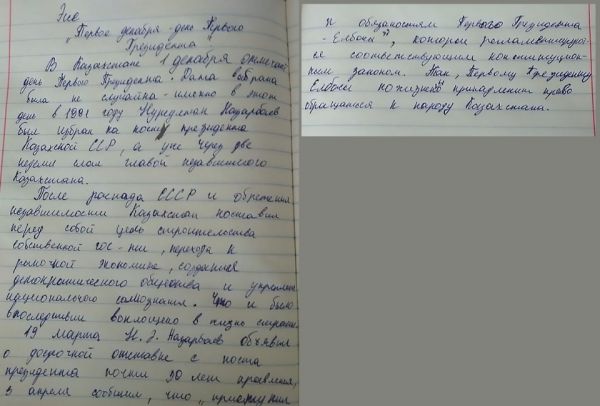 Эссе
"Первое декабря - день Первого
Президента"
В Казахстане 1 декабря отмечают
день Первого Президента. Дата выбрана
была не случайно - именно в этот
день в 1991 году Нурсултан Назарбаев
был избран на пост президента
Казахской ССР, а уже через две
недели стал главой независимого
Казахстана.
После распада СССР и обретения
независимости Казахстан поставил
перед собой цель строительства
собственной гос-ти, перехода к
рыночной экономике, создание
демократического общества и укрепления
национального самосознания. Что и было
впоследствии воплощено в жизнь страны.
19 марта Н. Назарбаев объявил
о досрочной отставке с поста
президента почти 30 лет правления,
3 апреля сообщил, что "приступил
к обязаностям Первого Президента
- Елбасы", которой регламентируют-
ся соответствующим конституцион-
ным законом. Так, Первому Президенту
Елбасы пожизнено принадлежит право
обращаться к народу Казахстана.